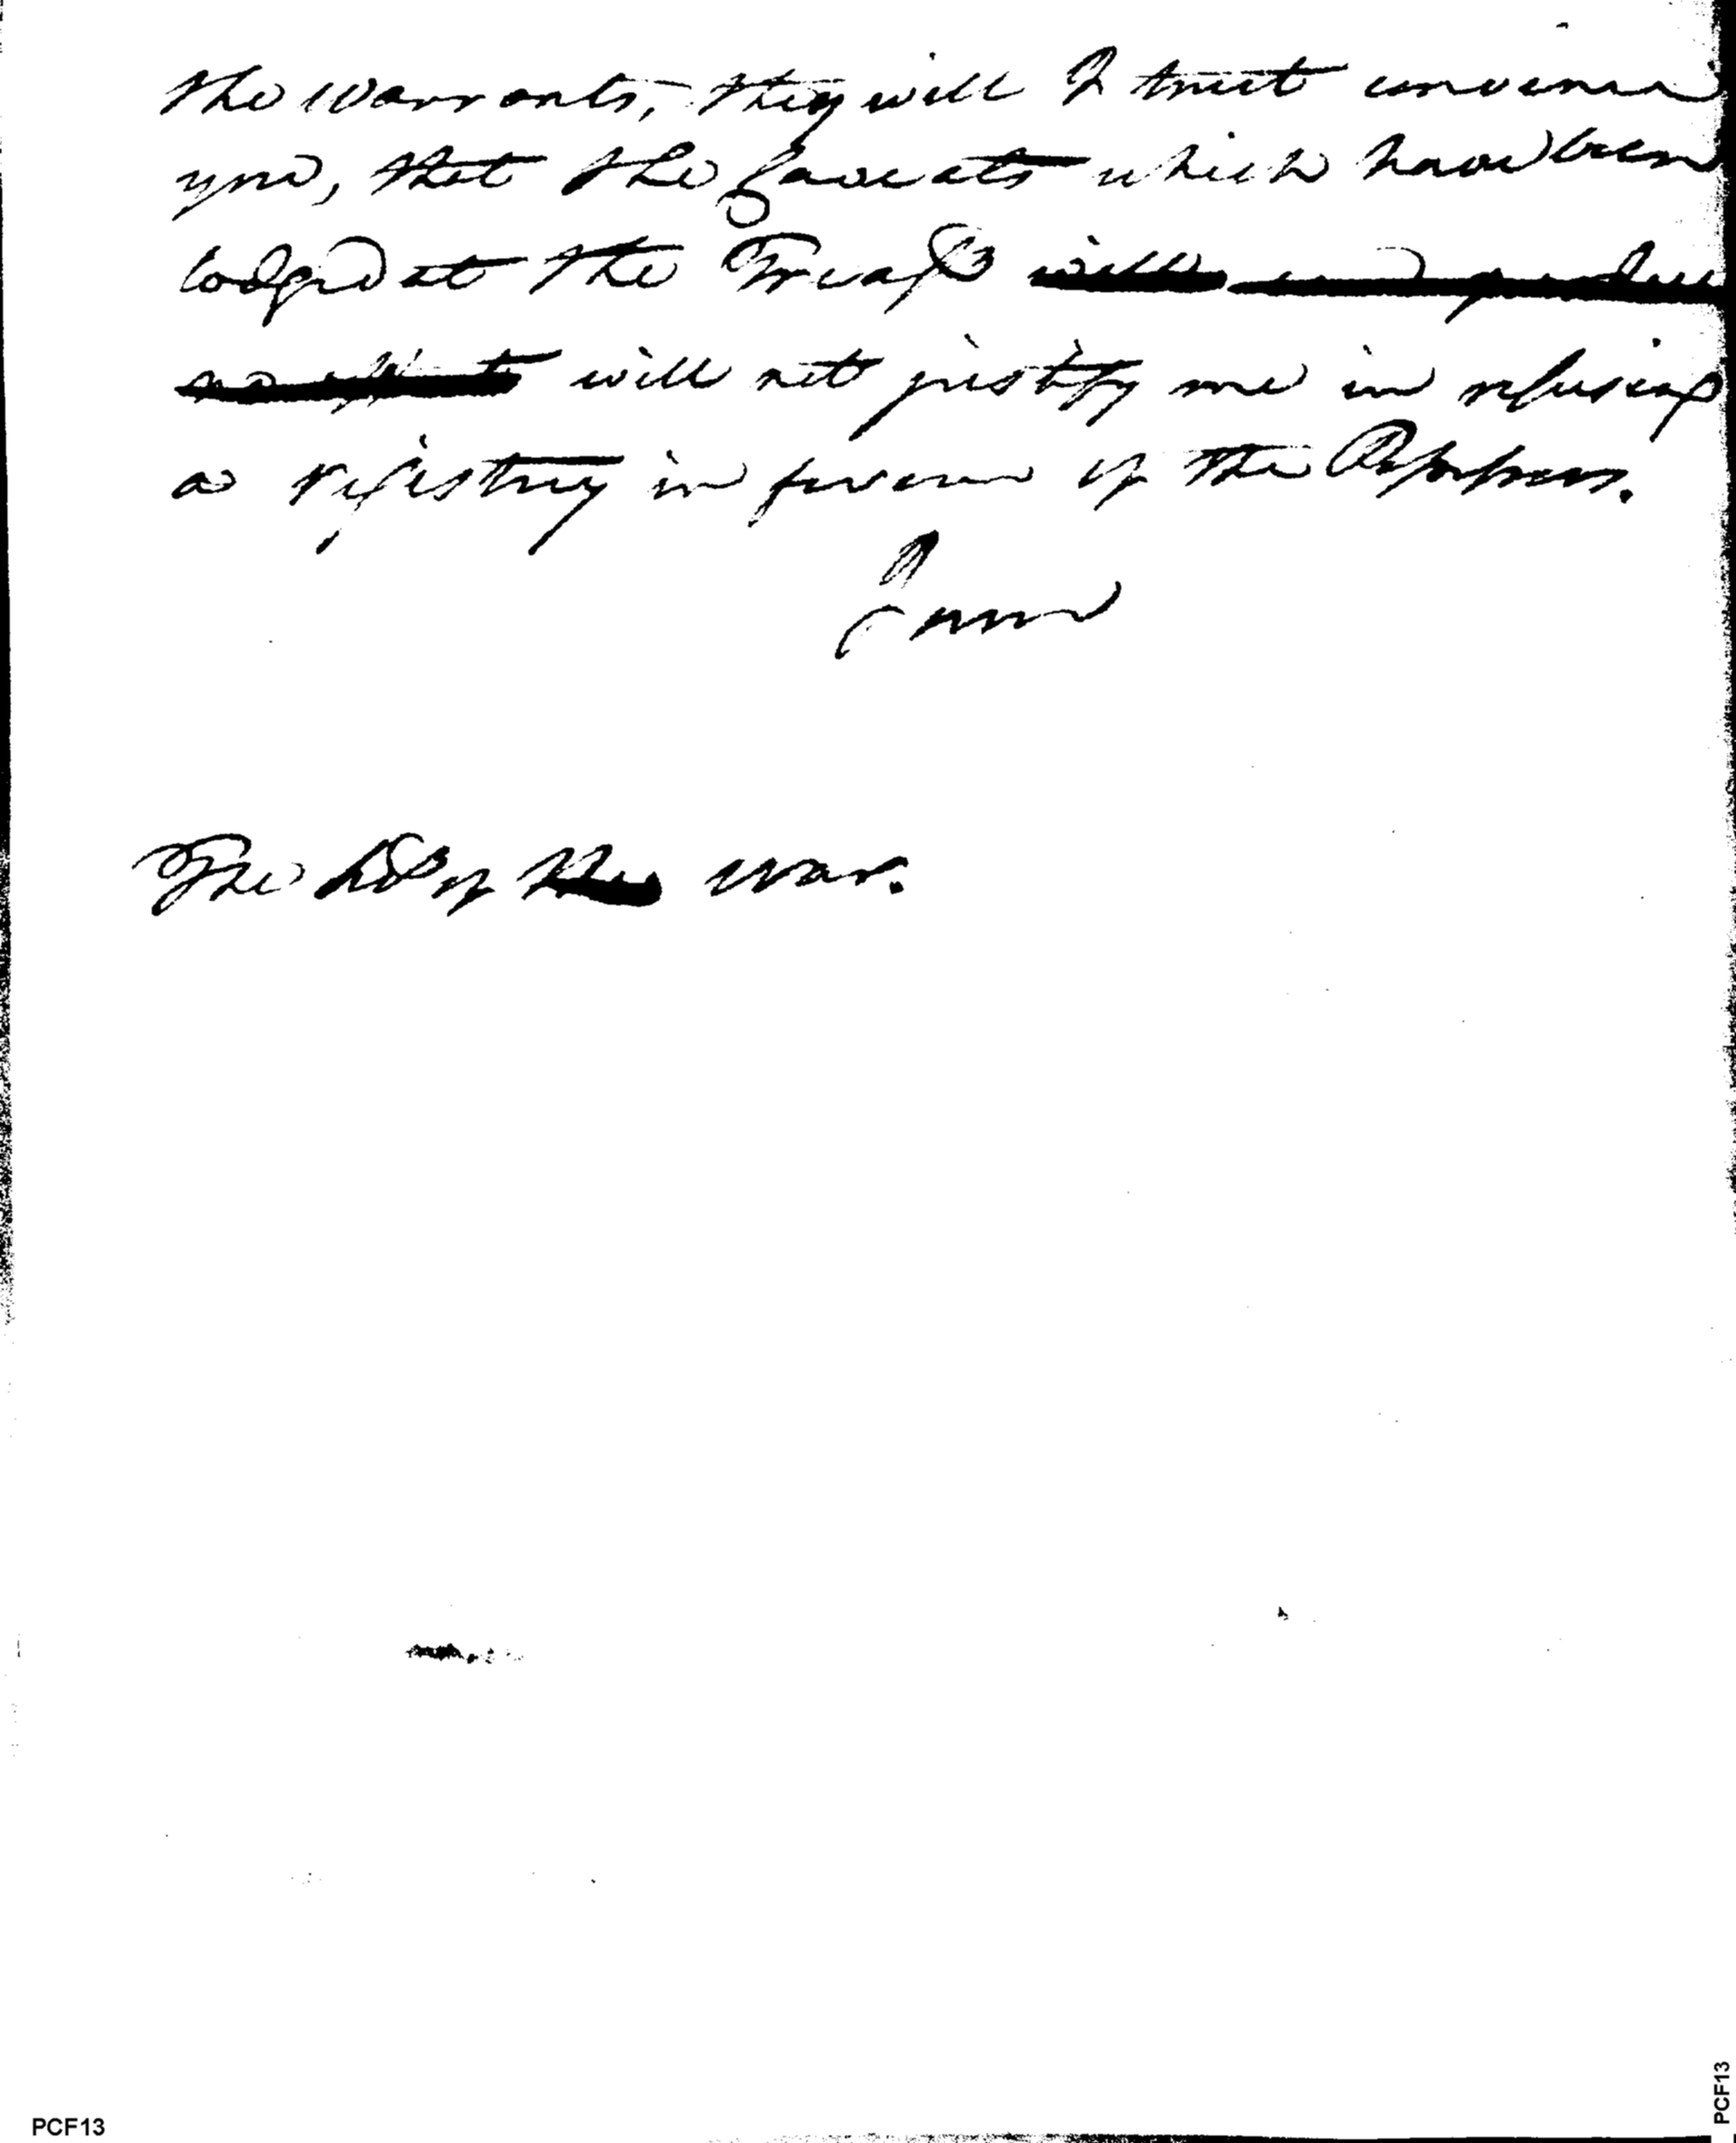 the Warrants, they will I trust convince
you, that the Caveats which have been
lodged at the Treasy will
will not justify me in refusing
a registry in favour of the Appees.
I am
The Secy of the War.
PCF13
PCF13